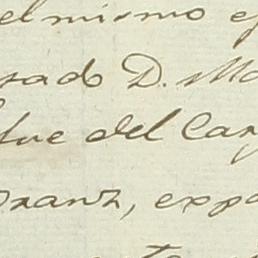 el mismo
sado D. Ma
fue del Car
Dranz, expo